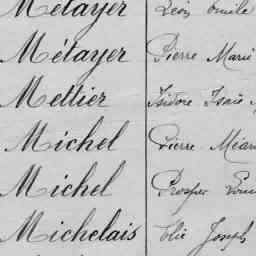 Métayer Léon Emile
Métayer Pierre Marie
Mettier Isidore Isaïe
Michel Pierre
Michel Prosper
Michelais Elie Joseph